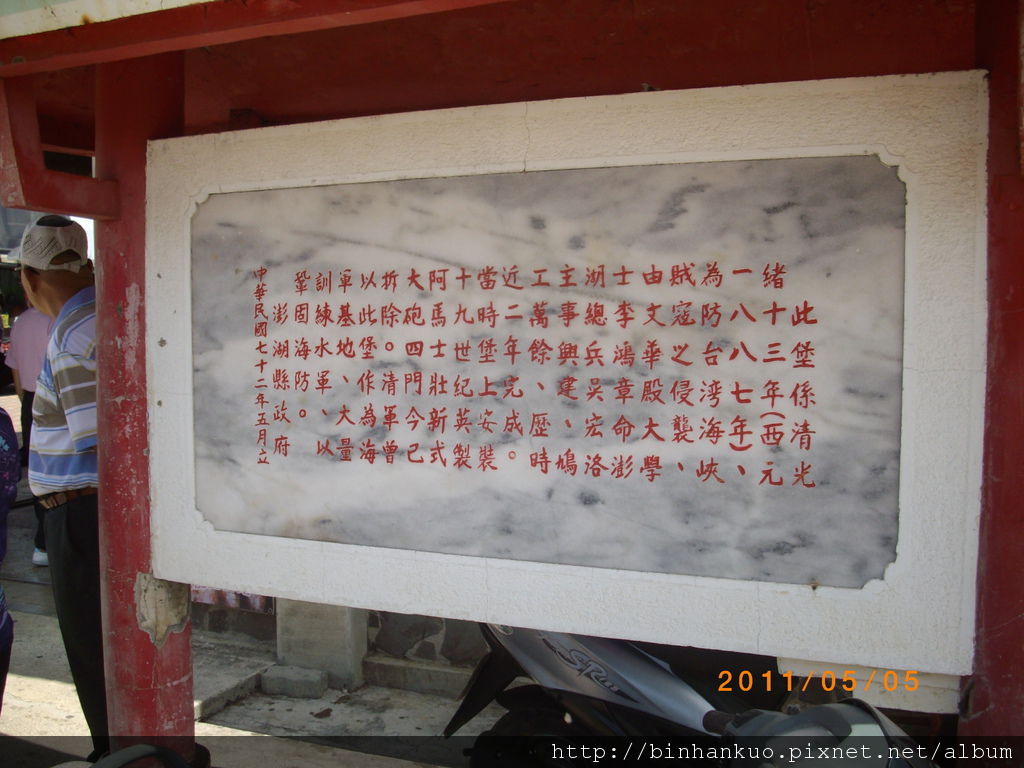 此堡係清光
緒十三年(西元
一八八七年)、
為防台湾海峽
賊寇之侵襲、
由文華殿大學
士李鴻章命澎
湖總兵吳宏洛
主事興建、鳩
工萬餘、歷時
近二年完成。
當時堡上安裝
十九世紀英製
阿馬士壯新式
大砲四門今已
拆除。清軍曾
以此堡作為海
軍基地、大量
訓練水軍、以
鞏固海防。
澎湖縣政府
中華民國七十二年五月立
2011/05/05
http://binhankuo.pixnet.net/album